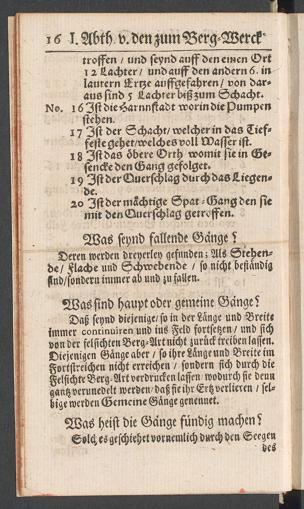 16 I. Abth. v. den zum Berg-Werck
troffen / und seynd auff den einen Ort
12 Lachter / und auff den andern 6. in
lautern Ertze auffgefahren / von dar-
aus sind 5 Lachter biß zum Schacht.
No. 16 Ist die Harnnstadt worin die Pumpen
stehen.
17 Ist der Schacht / welcher in das Tief-
feste gehet / welches voll Wasser ist.
18 Ist das öbere Orth womit sie in Ge-
sencke den Gang gefolget.
19 Ist der Querschlag durch das Liegen-
de.
20 Ist der mächtige Spat-Gang den sie
mit den Querschlag getroffen.
Was seynd fallende Gänge?
Deren werden dreyerley gefunden; Als Stehen-
de / Flache und Schwebende / so nicht beständig
sind / sondern immer ab und zu fallen.
Was sind haupt oder gemeine Gänge?
Daß seynd diejenige / so in der Länge und Breite
immer continuiren und ins Feld fortsetzen / und sich
von der felsichten Berg-Art nicht zurück treiben lassen.
Diejenigen Gänge aber / so ihre Länge und Breite im
Fortstreichen nicht erreichen / sondern sich durch die
Felsichte Berg-Art verdrucken lassen / wodurch sie denn
gantz verunedelt werden / daß sie ihr Ertz verlieren / sel-
bige werden Gemeine Gänge genennet.
Was heist die Gänge fündig machen?
Solches geschiehet vornemlich durch den Seegen
des